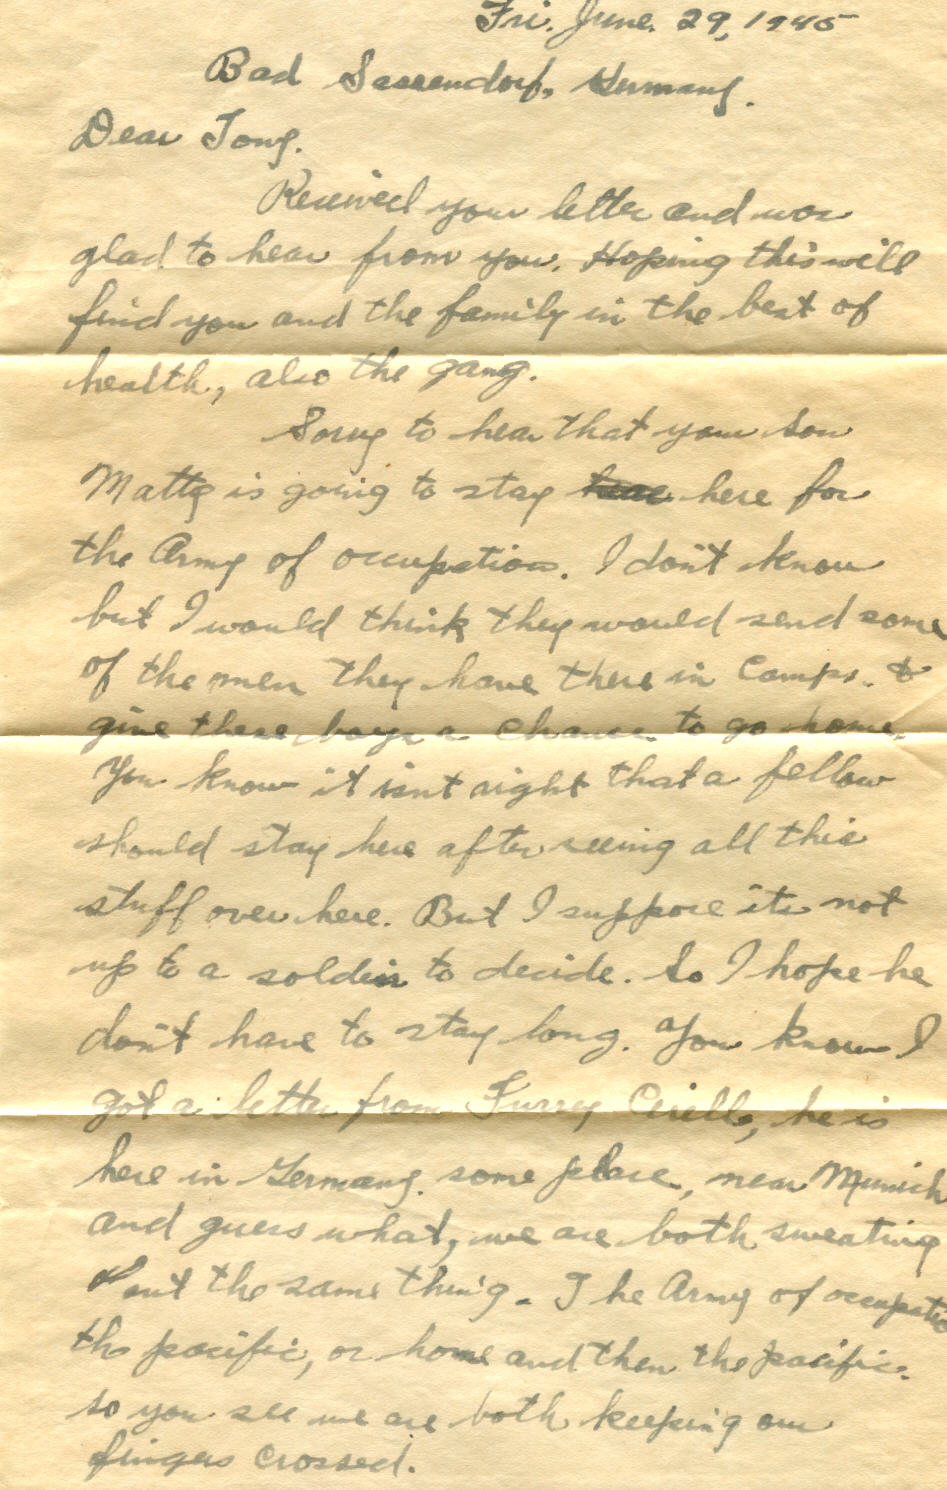 Fri. June. 29, 1945
Bad Sassendorf, Germany.
Dear Tony.
Received your letter and was
glad to hear from you. Hoping this will
find you and the family in the best of
health, also the gang.
Sorry to hear that your son
Matty is going to stay here for
the Army of occupation. I don't know
but I would think they would send some
of the men they have there in Camps. &
give these boys a chance to go home.
You know it isn't right that a fellow
should stay here after seeing all this
stuff over here. But I suppose its not
up to a soldier to decide. So I hope he
don't have to stay long. You know I
got a letter from Cirello, he is
here in Germany. some place, near Munich
and guess what, we are both sweating
out the same thing. The Army of occupatio
the pacific, or home and then the pacific.
so you see we are both keeping our
fingers crossed.